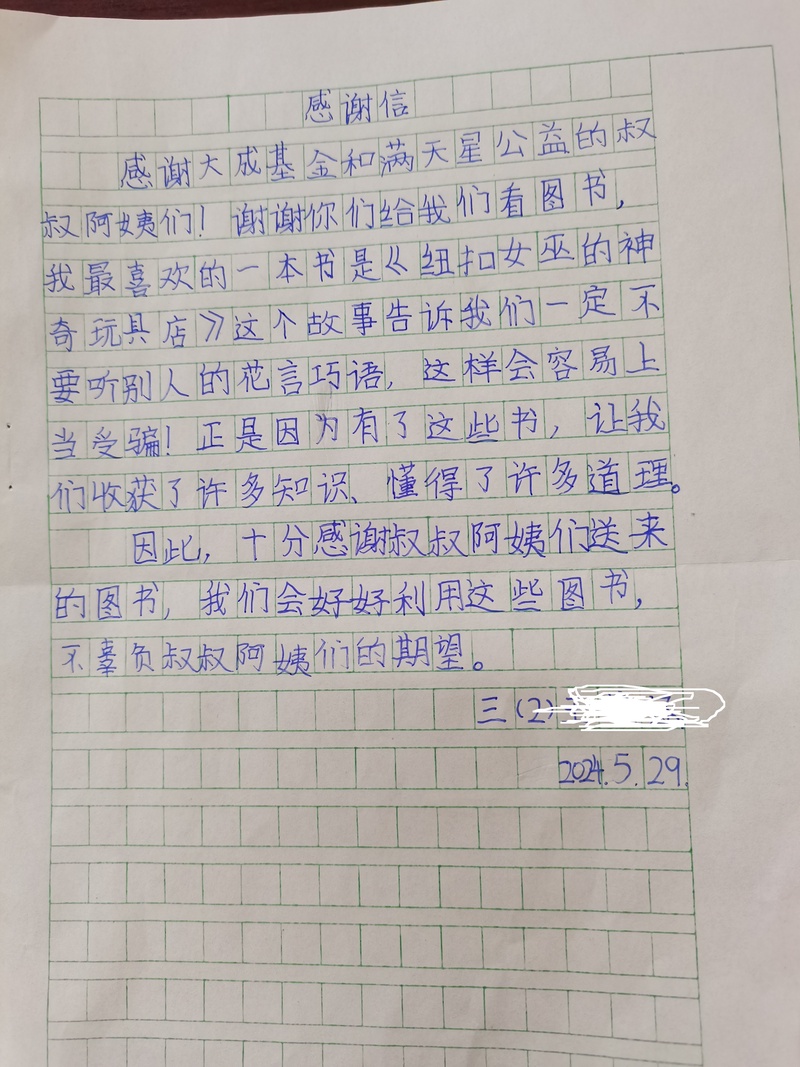 感谢信
感谢大成基金和满天星公益的叔
叔阿姨们！谢谢你们给我们看图书，
我最喜欢的一本书是《纽扣女巫的神
奇玩具店》这个故事告诉我们一定不
要听别人的花言巧语，这样会容易上
当受骗！正是因为有了这些书，让我
们收获了许多知识、懂得了许多道理。
因此，十分感谢叔叔阿姨们送来
的图书，我们会好好利用这些图书，
不辜负叔叔阿姨们的期望。
三(2)
2024.5.29.